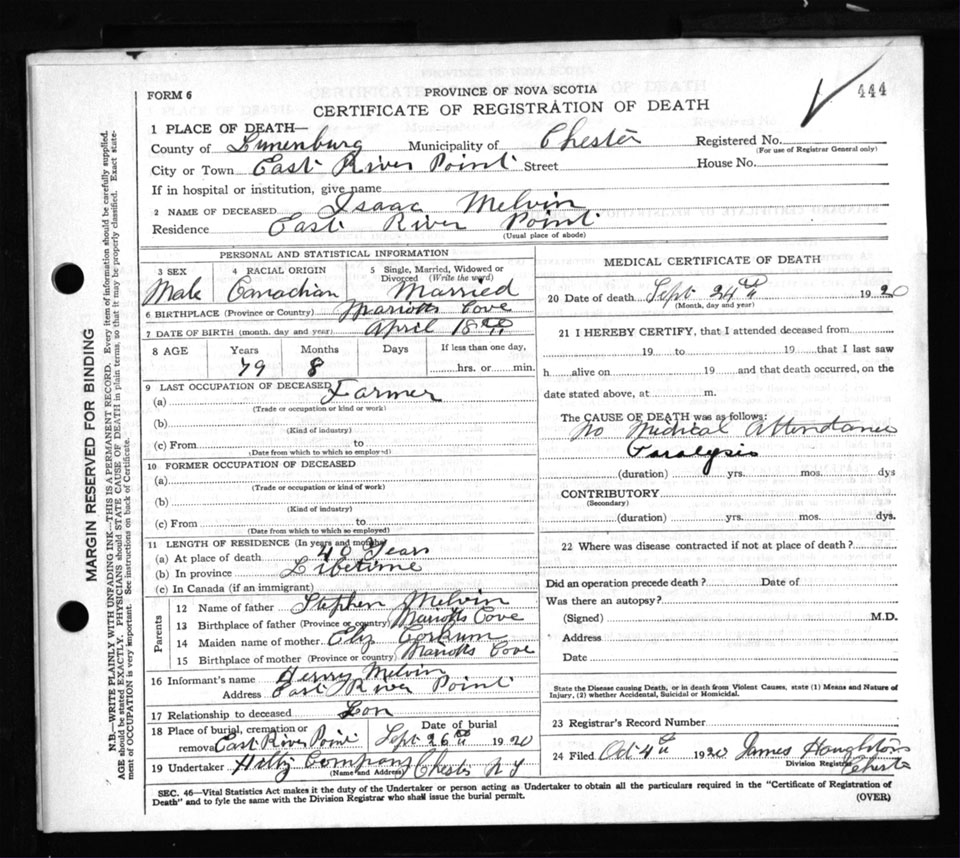 444
FORM 6
PROVINCE OF NOVA SCOTIA
CERTIFICATE OF REGISTRATION OF DEATH
1 PLACE OF DEATH—
County of Lunenburg Municipality of Chester Registered No.
(For use of Registrar General only)
City or Town East River Point Street House No.
If in hospital or institution, give name
2 NAME OF DECEASED Isaac Melvin
Residence East River Point
(Usual place of abode)
PERSONAL AND STATISTICAL INFORMATION
3 SEX Male
4 RACIAL ORIGIN Canadian
5 Single, Married, Widowed or Divorced (Write the word) Married
6 BIRTHPLACE (Province or Country) Marriotts Cove
7 DATE OF BIRTH (month, day and year) April 18
8 AGE Years Months Days If less than one day,
79 8 hrs. or min.
9 LAST OCCUPATION OF DECEASED
(a) Farmer
(Trade or occupation or kind or work)
(b)
(Kind of industry)
(c) From to
(Date from which to which so employed)
10 FORMER OCCUPATION OF DECEASED
(a)
(Trade or occupation or kind of work)
(b)
(Kind of industry)
(c) From to
(Date from which to which so employed)
11 LENGTH OF RESIDENCE (In years and months)
(a) At place of death 40 Years
(b) In province Lifetime
(c) In Canada (if an immigrant)
Parents
12 Name of father Stephen Melvin
13 Birthplace of father (Province or country) Marriotts Cove
14 Maiden name of mother Eliz Corkum
15 Birthplace of mother (Province or country) Marriotts Cove
16 Informant's name Henry Melvin
Address East River Point
17 Relationship to deceased Son
18 Place of burial, cremation or removal East River Point
Date of burial Sept 26th 1920
19 Undertaker Hilty Company Chester N S
(Name and Address)
MEDICAL CERTIFICATE OF DEATH
20 Date of death Sept 24th 1920
(Month, day and year)
21 I HEREBY CERTIFY, that I attended deceased from
19 to 19 that I last saw
h alive on 19 and that death occurred, on the
date stated above, at m.
The CAUSE OF DEATH was as follows:
No Medical Attendance
Paralysis
(duration) yrs. mos. dys
CONTRIBUTORY
(Secondary)
(duration) yrs. mos. dys.
22 Where was disease contracted if not at place of death?
Did an operation precede death? Date of
Was there an autopsy?
(Signed) M.D.
Address
Date
State the Disease causing Death, or in death from Violent Causes, state (1) Means and Nature of
Injury, (2) whether Accidental, Suicidal or Homicidal.
23 Registrar's Record Number
24 Filed Oct 4th 1920 James Houghston
Division Registrar Chester
SEC. 46—Vital Statistics Act makes it the duty of the Undertaker or person acting as Undertaker to obtain all the particulars required in the "Certificate of Registration of
Death" and to fyle the same with the Division Registrar who shall issue the burial permit.
(OVER)
MARGIN RESERVED FOR BINDING
N.B.—WRITE PLAINLY WITH UNFADING INK—THIS IS A PERMANENT RECORD. Every item of information should be carefully supplied.
AGE should be stated EXACTLY. PHYSICIANS should STATE CAUSE OF DEATH in plain terms, so that it may be properly classified. Exact state-
ment of OCCUPATION is very important. See instructions on back of Certificate.